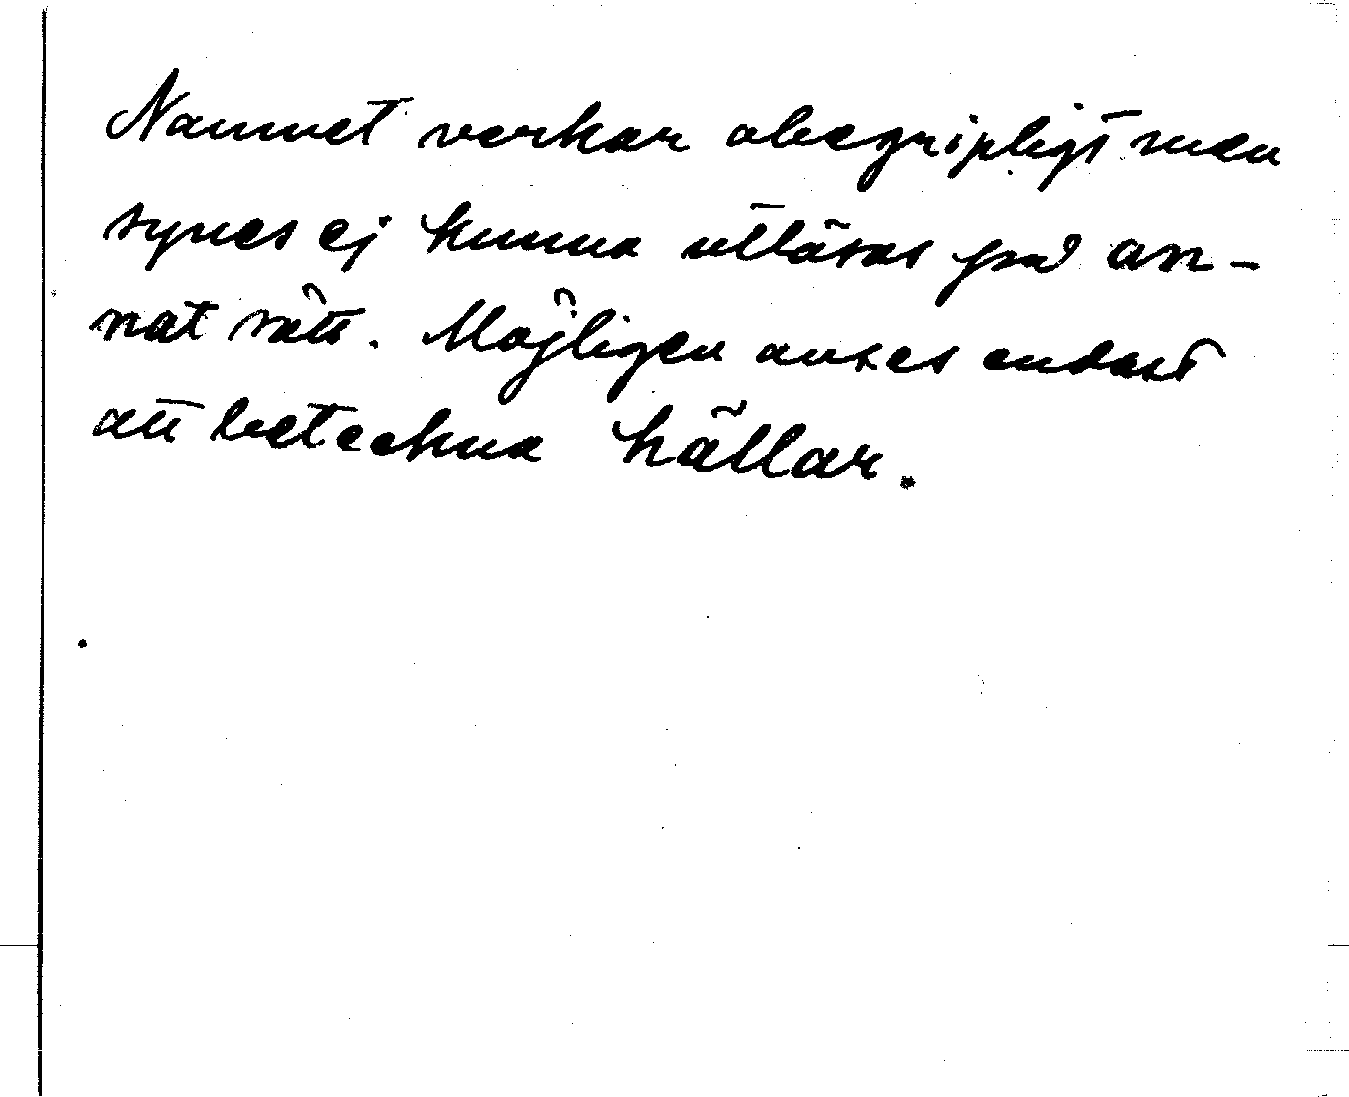 Namnet verkar obegripligt men
synes ej kunna utläsas på an-
nat sätt. Möjligen anses endast
att beteckna hällar.